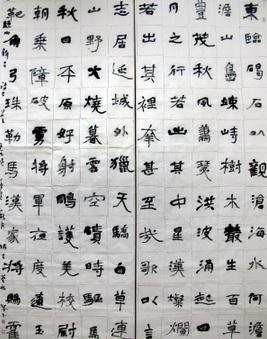 東臨碣石以觀滄海水何澹
澹山島竦峙樹木叢生百草
豐茂秋風蕭瑟洪波涌起日
月之行若出其中星漢燦爛
若出其裡幸甚至哉歌以言
志居延城外獵天驕白草連
山野火燒暮雲空磧時驅馬
秋日平原好射鵰護羌校尉
朝乘障破虜將軍夜度遼玉
靶角弓珠勒馬漢家將賜霍